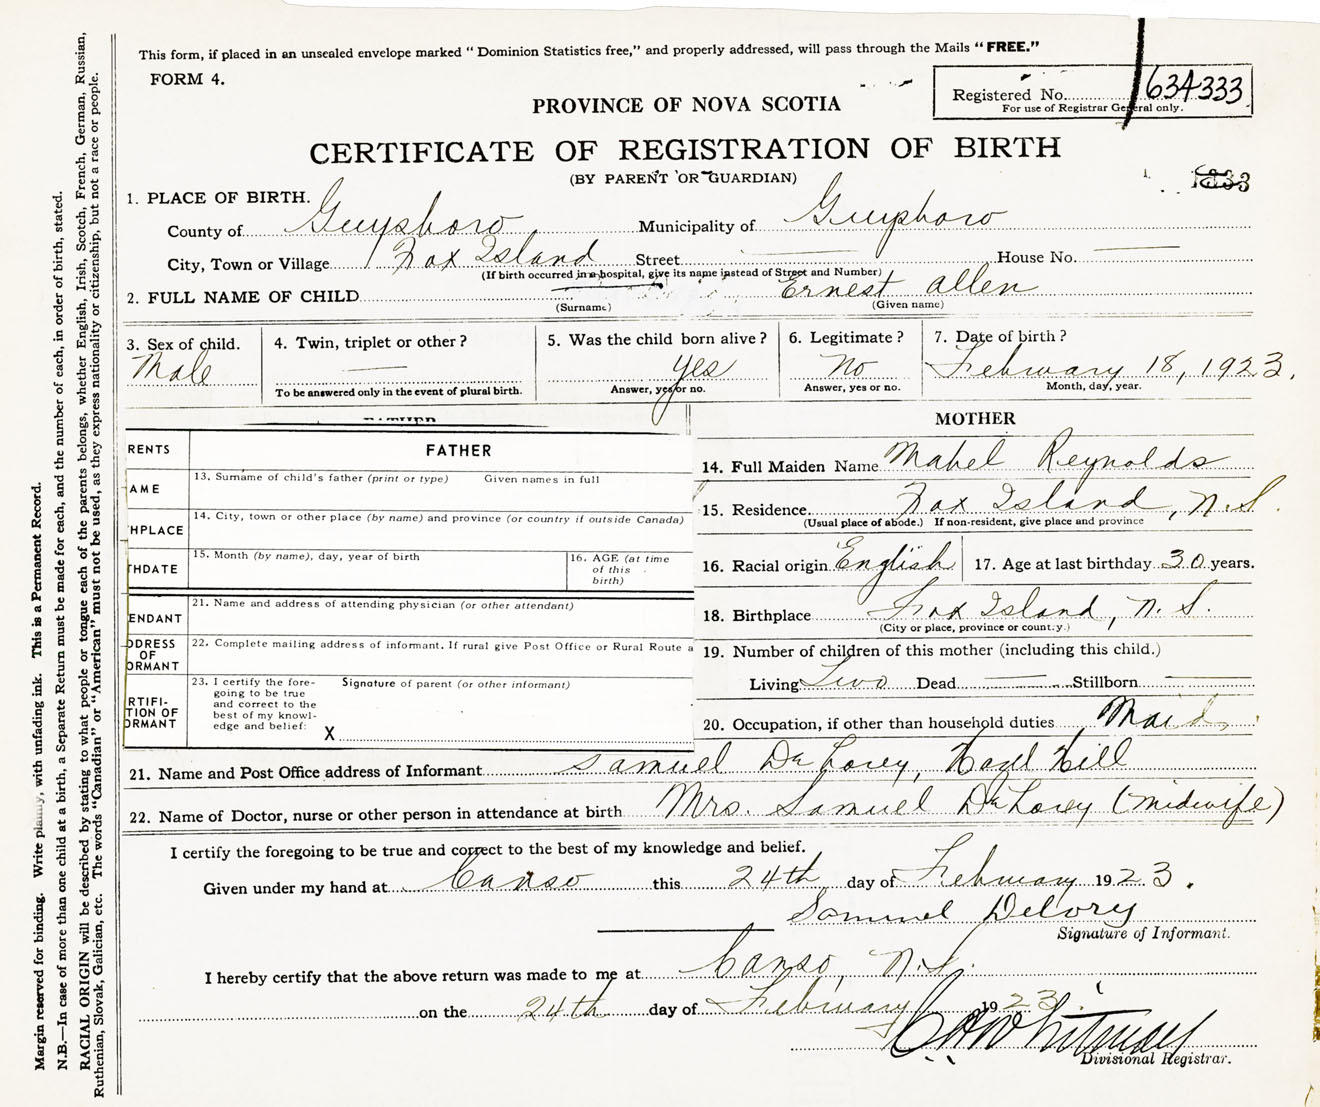 This form, if placed in an unsealed envelope marked "Dominion Statistics free," and properly addressed, will pass through the Mails "FREE."
FORM 4.
Registered No. 634333
For use of Registrar General only.
PROVINCE OF NOVA SCOTIA
CERTIFICATE OF REGISTRATION OF BIRTH
(BY PARENT OR GUARDIAN)
1. PLACE OF BIRTH.
County of Guysboro Municipality of Guysboro
City, Town or Village Fox Island Street House No.
(If birth occurred in a hospital, give its name instead of Street and Number)
2. FULL NAME OF CHILD Ernest Allen
(Surname) (Given name)
3. Sex of child. 4. Twin, triplet or other? 5. Was the child born alive? 6. Legitimate? 7. Date of birth?
Male yes No February 18, 1923.
To be answered only in the event of plural birth. Answer, yes or no. Answer, yes or no. Month, day, year.
FATHER
RENTS FATHER
AME 13. Surname of child's father (print or type) Given names in full
HPLACE 14. City, town or other place (by name) and province (or country if outside Canada)
THDATE 15. Month (by name), day, year of birth 16. AGE (at time of this birth)
ENDANT 21. Name and address of attending physician (or other attendant)
DDRESS OF ORMANT 22. Complete mailing address of informant. If rural give Post Office or Rural Route a
RTIFI-
TION OF
ORMANT
23. I certify the fore-
going to be true
and correct to the
best of my knowl-
edge and belief:
Signature of parent (or other informant)
X
MOTHER
14. Full Maiden Name Mabel Reynolds
15. Residence Fox Island, N.S.
(Usual place of abode.) If non-resident, give place and province
16. Racial origin English 17. Age at last birthday 30 years.
18. Birthplace Fox Island, N.S.
(City or place, province or country.)
19. Number of children of this mother (including this child.)
Living Two Dead Stillborn
20. Occupation, if other than household duties Maid
21. Name and Post Office address of Informant Samuel DeLorey, Hazel Hill
22. Name of Doctor, nurse or other person in attendance at birth Mrs. Samuel DeLorey (midwife)
I certify the foregoing to be true and correct to the best of my knowledge and belief.
Given under my hand at Canso this 24th day of February 1923.
Samuel Delorey
Signature of Informant.
I hereby certify that the above return was made to me at Canso, N.S.
on the 24th day of February 1923.
Divisional Registrar.
Margin reserved for binding. Write plainly, with unfading ink. This is a Permanent Record.
N.B.—In case of more than one child at a birth, a Separate Return must be made for each, and the number of each, in order of birth, stated.
RACIAL ORIGIN will be described by stating to what people or tongue each of the parents belongs, whether English, Irish, Scotch, French, German, Russian,
Ruthenian, Slovak, Galician, etc. The words "Canadian" or "American" must not be used, as they express nationality or citizenship, but not a race or people.